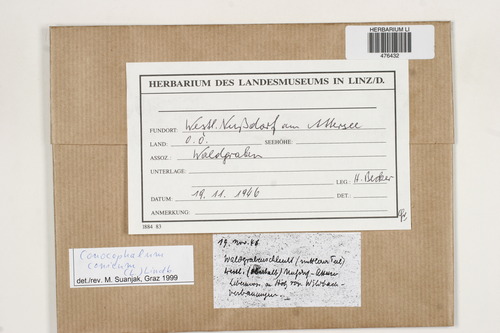 HERBARIUM LI
476432
HERBARIUM DES LANDESMUSEUMS IN LINZ/D.
FUNDORT: Westl. Nußdorf am Attersee
LAND: O.Ö. SEEHÖHE:
ASSOZ.: Waldgraben
UNTERLAGE:
LEG.: H. Becker
DATUM: 19. 11. 1946 DET.:
ANMERKUNG:
1884 83
Conocephalum
conicum
(L.) Lindb.
det./rev. M. Suanjak, Graz 1999
19. Nov. 46
Waldgrabenschlucht (mittlerer Teil)
westl. Nußdorf-Attersee